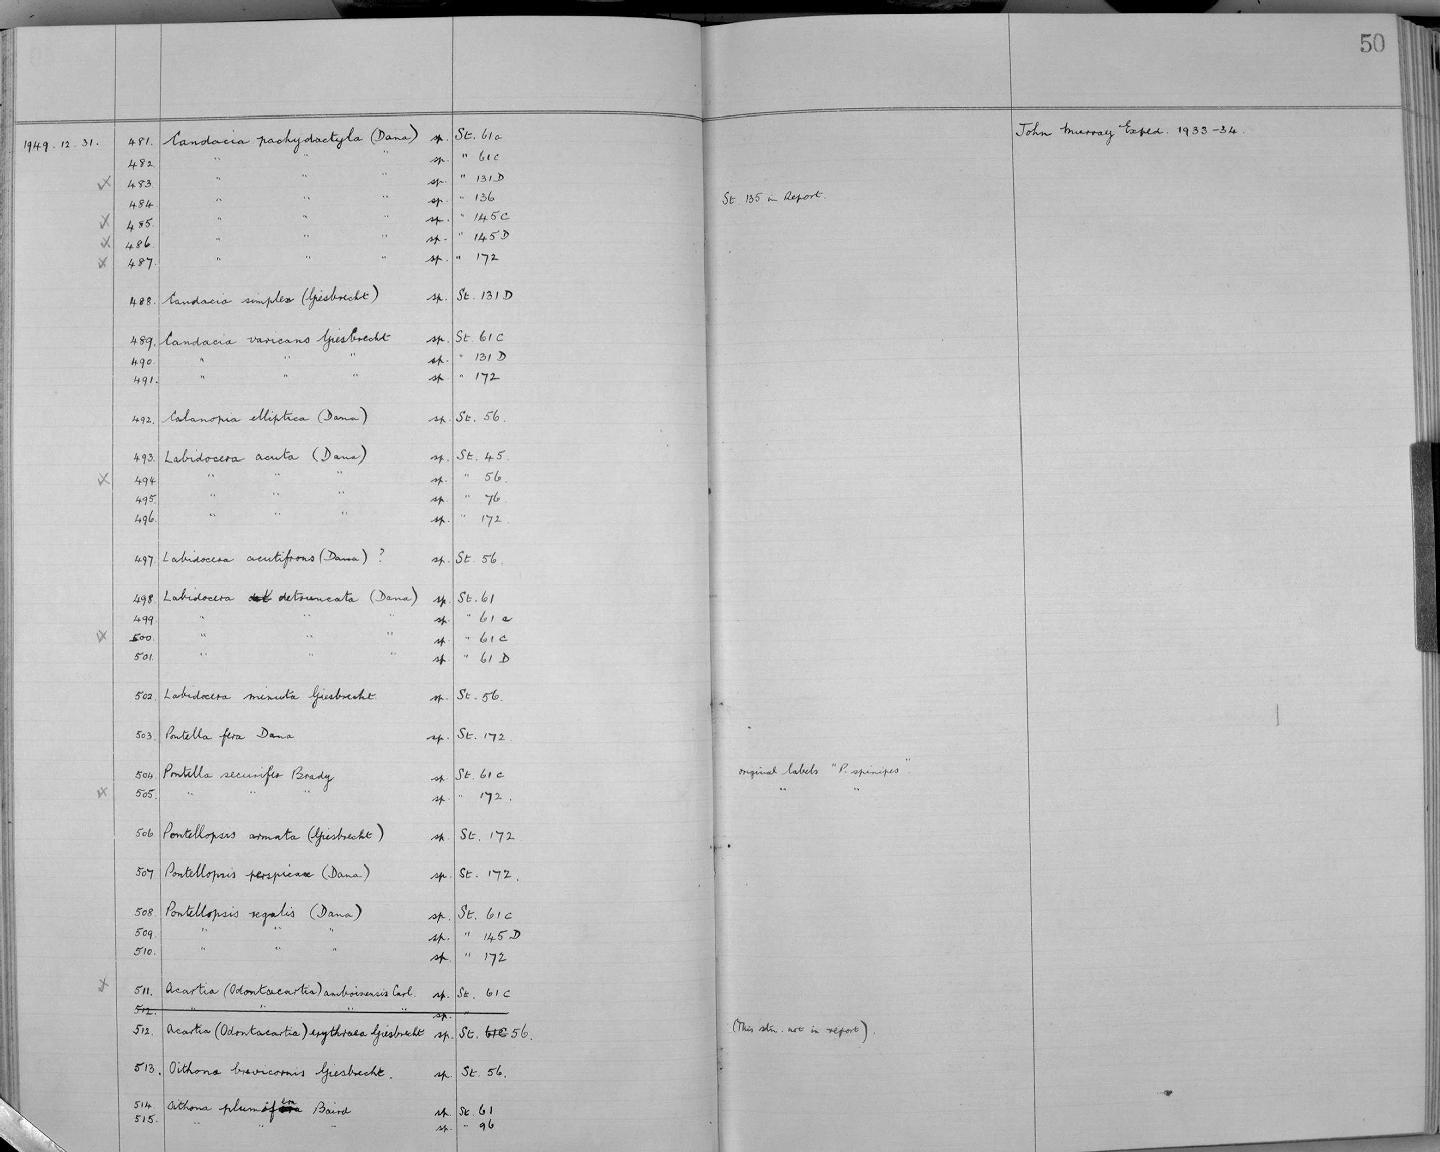 50
1949.12.31. 481. Candacia pachydactyla (Dana) sp. St. 61a John Murray Exped. 1933-34.
482 " " " sp. " 61C
483 " " " sp. " 131D
484 " " " sp. " 136 St. 135 in Report.
485. " " " sp. " 145C
486 " " " sp. " 145D
487. " " " sp. " 172
488. Candacia simplex (Giesbrecht) sp. St. 131D
489. Candacia varicans Giesbrecht sp. St. 61C
490. " " " sp. " 131D
491. " " " sp. " 172
492. Calanopia elliptica (Dana) sp. St. 56.
493. Labidocera acuta (Dana) sp. St. 45.
494 " " " sp. " 56.
495. " " " sp. " 76
496. " " " sp. " 172
497 Labidocera acutifrons (Dana) ? sp. St. 56.
498 Labidocera detruncata (Dana) sp. St. 61
499 " " " sp. " 61a
500. " " " sp. " 61C
501. " " " sp. " 61D
502. Labidocera minuta Giesbrecht sp. St. 56.
503. Pontella fera Dana sp. St. 172
504. Pontella securifer Brady sp. St. 61C original labels "P. spinipes"
505. " " " sp. " 172. " "
506 Pontellopsis armata (Giesbrecht) sp. St. 172
507 Pontellopsis perspicax (Dana) sp. St. 172.
508 Pontellopsis regalis (Dana) sp. St. 61C
509. " " " sp. " 145D
510. " " " sp. " 172
511. Acartia (Odontacartia) amboinensis Carl. sp. St. 61C
512. " " " " sp. "
512. Acartia (Odontacartia) erythraea Giesbrecht sp. St. 61C 56. (This stn. not in report).
513. Oithona brevicornis Giesbrecht. sp. St. 56.
514 Oithona plumifera Baird sp. St. 61
515. " " " sp. " 96